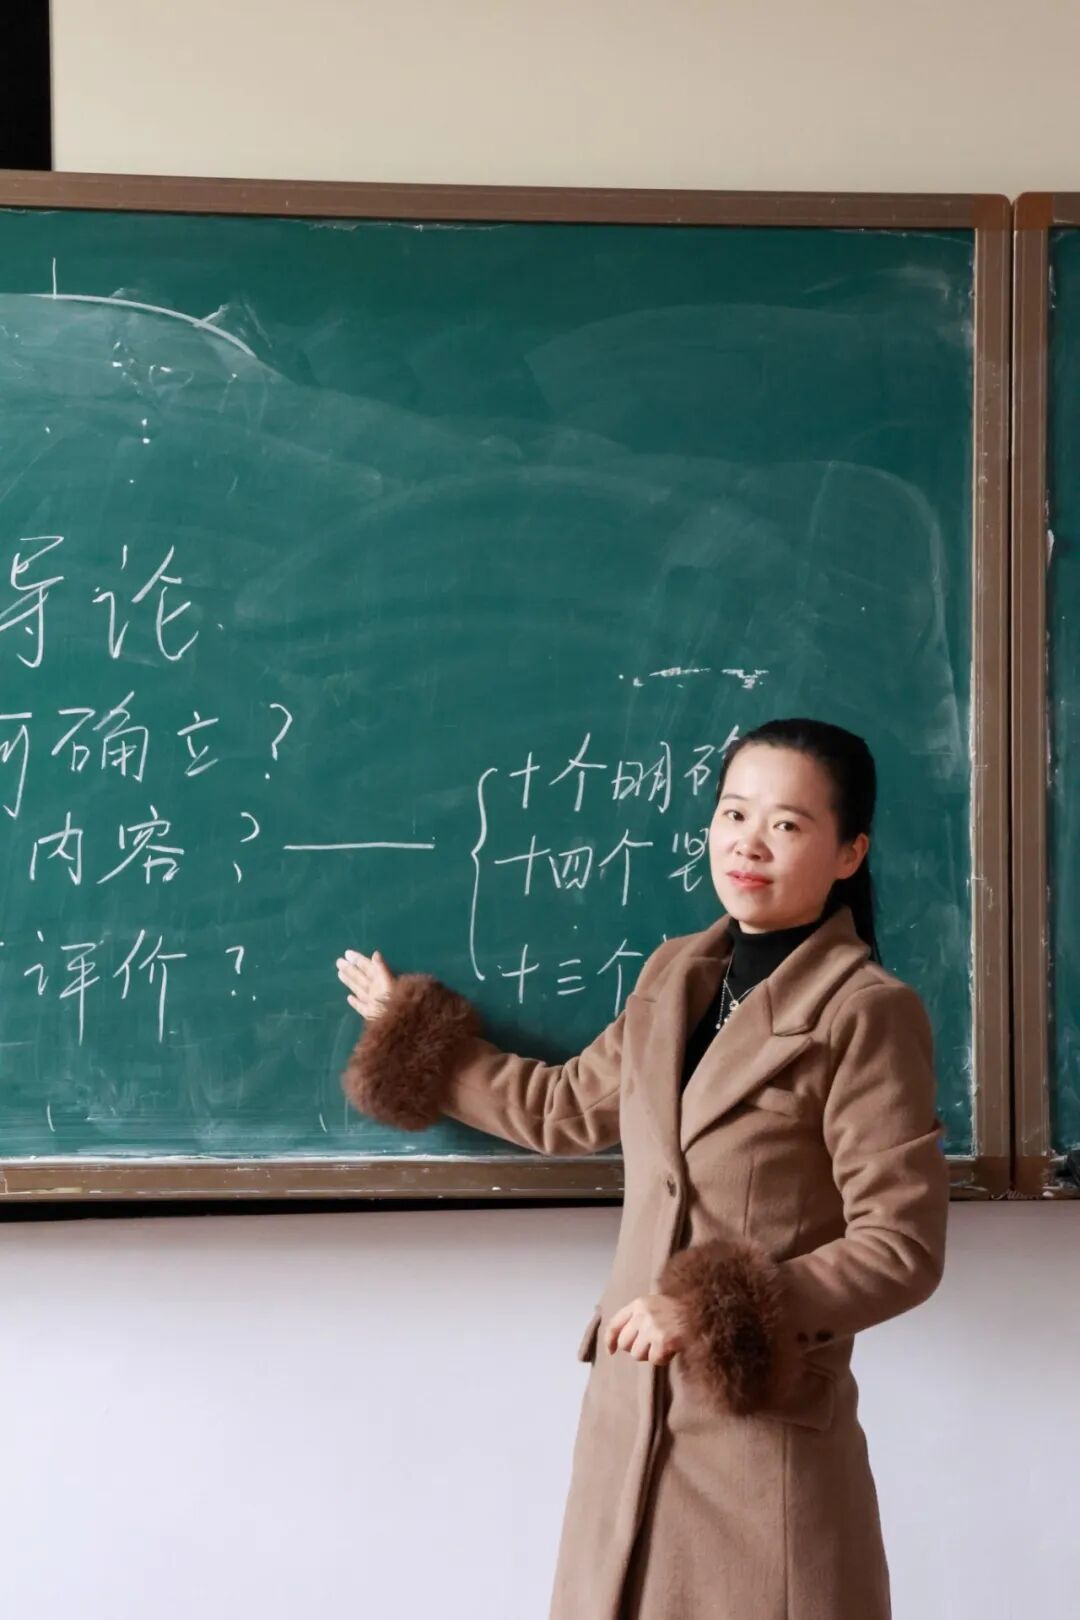 导论
何确立?
内容?
评价?
十个明确
十四个坚
十三个